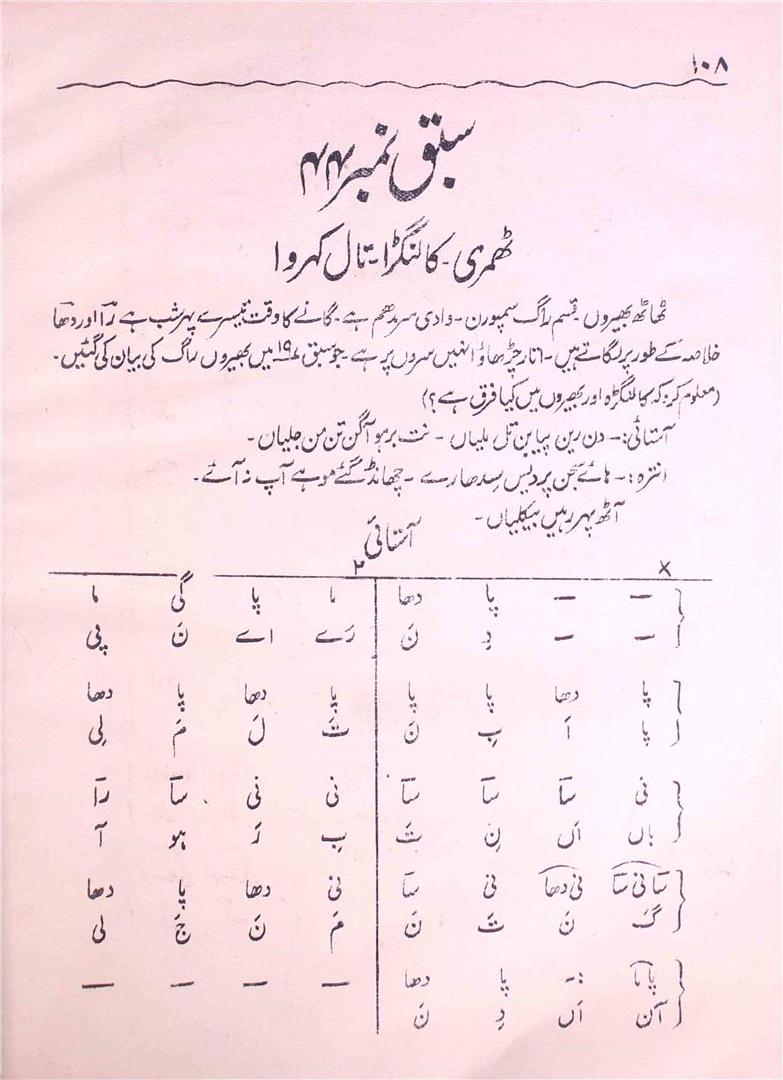 ۱۰۸
سبق نمبر ۴۴
ٹھمری - کالنگڑا - تال کہروا
ٹھاٹھ بھیروں قسم راگ سمپورن - وادی سر مدھم ہے - گانے کا وقت تیسرے پہر شب ہے رآ اور دھآ
خلاصہ کے طور پر لگاتے ہیں - اتار چڑھاؤ انہیں سروں پر ہے - جو سبق میں بھیروں راگ کی بیان کی گئیں -
(معلوم کرو کہ کالنگڑہ اور بھیروں میں کیا فرق ہے ؟)
آستائی :- دن رین پیا بن تل ملیاں - نت برہو آگن تن من جلیاں -
انترہ :- ہائے سجن پردیس سدھارے - چھانڈ گئے موہے آپ نہ آئے -
آٹھ پہر رہیں بیکلیاں -
آستائی
× ۲
— — پا دھا ما پا گی ما
— — دِ نَ رَے اے نَ پی
پا دھا پا پا پا دھا پا دھا
پا اَ بِ نَ تَ لَ مَ لِی
نی سآ سآ سآ نی نی سآ رآ
یاں اَں نِ تَ بِ رَ ہو آ
سآ نی سآ نی دھا نی سآ نی دھا پا دھا
گَ نَ تَ نَ مَ نَ جَ لی
پا ما :- پا دھا — — — —
آن اَں دِ نَ